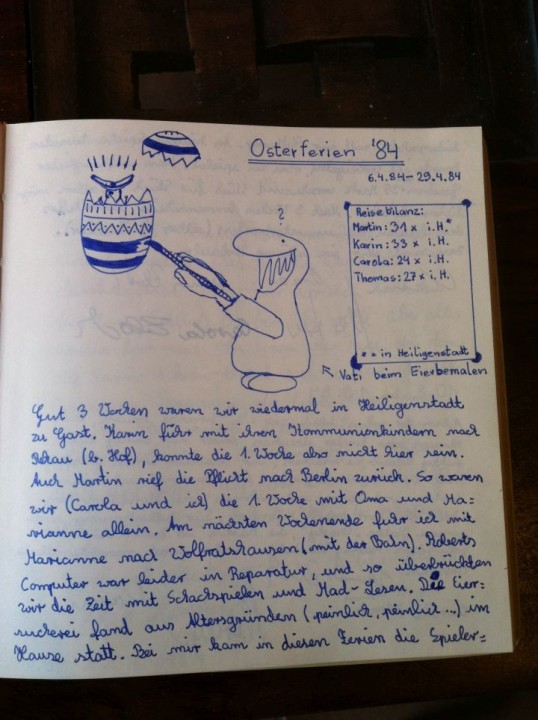 Osterferien '84
6.4.84 - 29.4.84
Reisebilanz:
Martin: 31 x i.H.*
Karin: 33 x i.H.
Carola: 24 x i.H.
Thomas: 27 x i.H.
* = in Heiligenstadt
?
Vati beim Eierbemalen
Gut 3 Wochen waren wir wiedermal in Heiligenstadt
zu Gast. Karin fuhr mit ihren Kommunionkindern nach
(b. Hof), konnte die 1. Woche also nicht hier sein.
Auch Martin rief die Pflicht nach Berlin zurück. So waren
wir (Carola und ich) die 1. Woche mit Oma und Ma=
rianne allein. Am nächsten Wochenende fuhr ich mit
Marianne nach Wolfratshausen (mit der Bahn). Roberts
Computer war leider in Reparatur, und so überbrückten
wir die Zeit mit Schachspielen und Mad-Lesen. Die Eier=
sucherei fand aus Altersgründen (peinlich, peinlich...) im
Hause statt. Bei mir kam in diesen Ferien die Spieler=